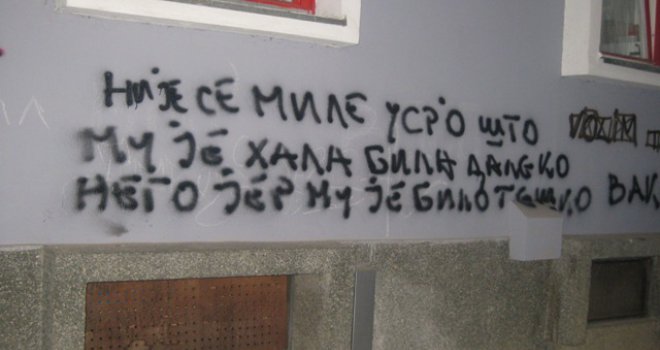 НИЈЕ СЕ МИЛЕ УСРО ШТО
МУ ЈЕ ХАЛА БИЛА ДАЛЕКО
НЕГО ЈЕР МУ ЈЕ БИЛО ТЕШКО